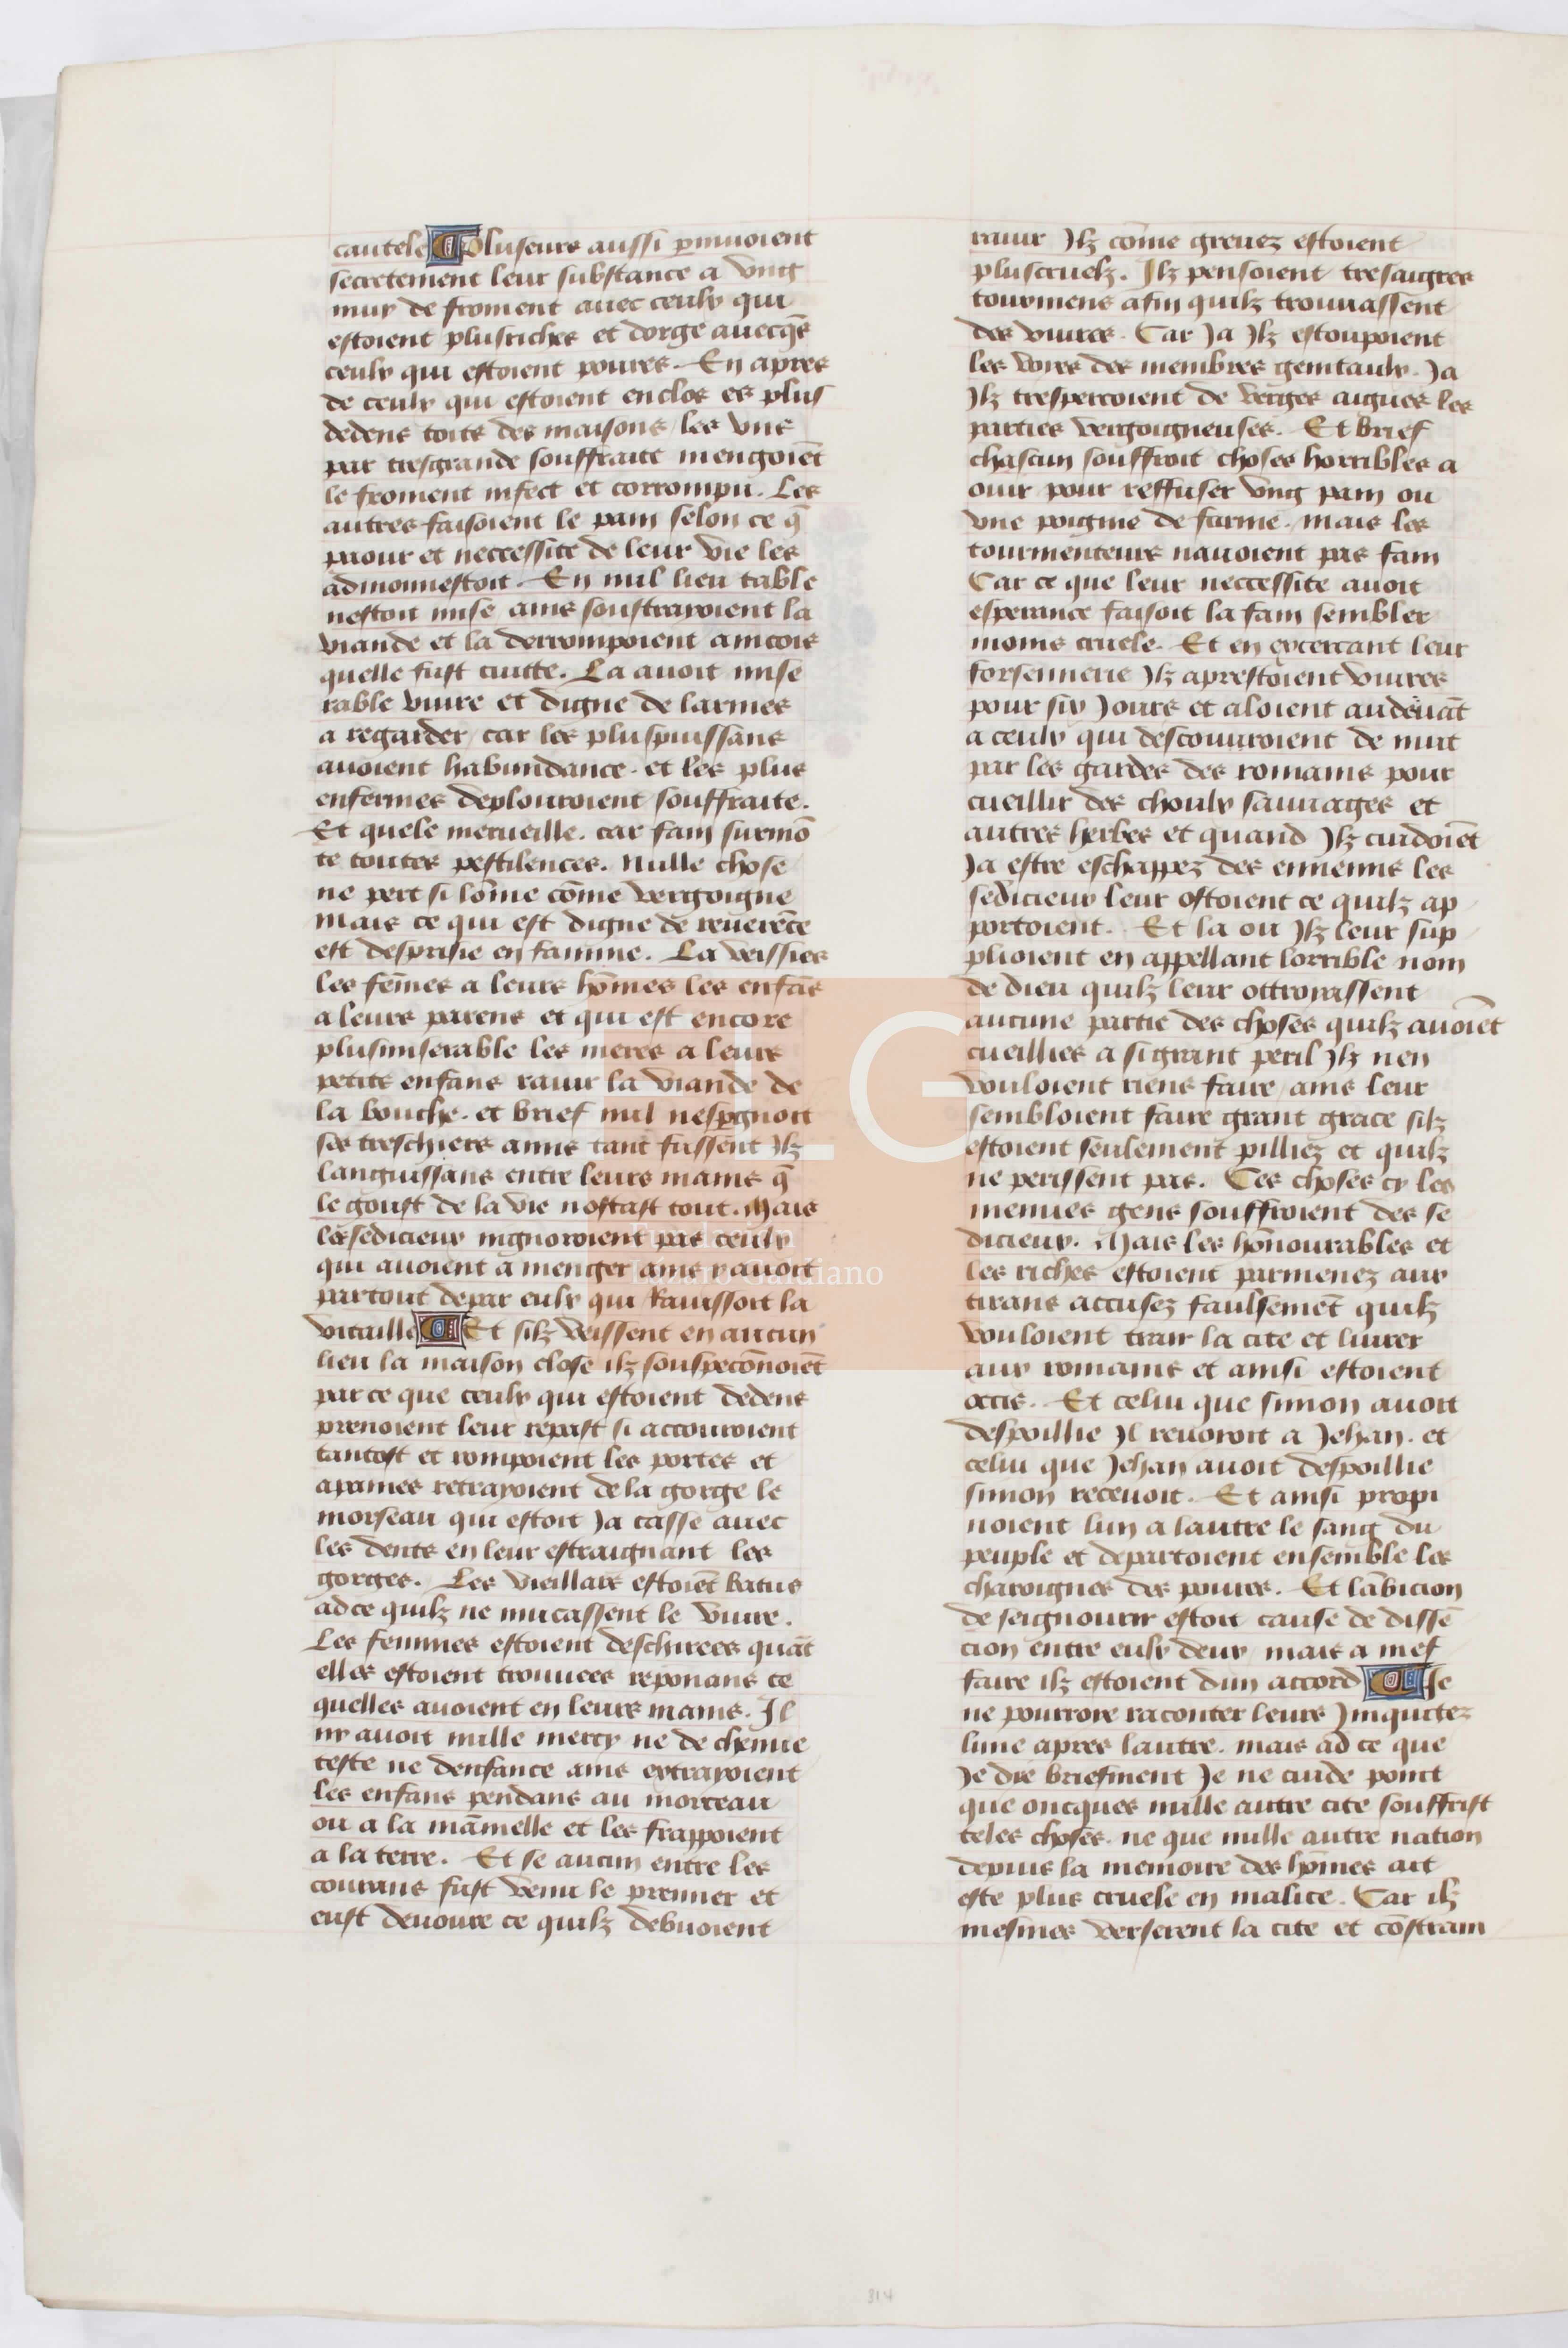 cautele Pluseurs aussi pmuoient
secretement leur substance a vng
muy de froment auec ceulx qui
estoient plusriches et dorge auecqs̄
ceulx qui estoient poures. En apres
de ceulx qui estoient enclos es plus
dedens toits des maisons les vns
par tresgrande souffraite mengoiēt
le froment infect et corrompu. Les
autres faisoient le pain selon ce q̄
paour et neccessite de leur vie les
admonnestoit. En nul lieu table
nestoit mise ains soustrayoient la
viande et la derrompoient aincois
quelle fust cuitte. La auoit mise
rable viure et digne de larmes
a regarder / car les pluspuissans
auoient habundance. et les plus
enfermes deplouroient souffraite.
Et quele merueille. car fain surmō
te toutes pestilences. Nulle chose
ne pert si lōme cōme vergoigne
mais ce qui est digne de reuerēce
est desprisie en famine. La veissies
les fēmes a leurs hōmes les enfās
a leurs parens et qui est encore
plusmiserable les meres a leurs
petits enfans rauir la viande de
la bouche. et brief nul nespgnoit
ses treschiers amis tant fussent Jlz
languissans entre leurs mains q̄
le goust de la vie nostast tout. Mais
lessedicieux nignoroient pas ceulx
qui auoient a menger ains y auoit
partout depar eulx qui Rauissoit la
vitaille Et silz veissent en aucun
lieu la maison close ilz souspecōnoiēt
par ce que ceulx qui estoient dedens
prenoient leur repast si accouroient
tantost et rompoient les portes et
apaines retrayoient de la gorge le
morseau qui estoit Ja casse auec
les dents en leur estraignant les
gorges. Les vieillars estoiēt batus
adce quilz ne mucassent le viure.
Les femmes estoient deschirees quāt
elles estoient trouuees reponans ce
quelles auoient en leurs mains. Il
ny auoit nulle mercy ne de chenue
teste ne denfance ains extrayoient
les enfans pendans au morceau
ou a la māmelle et les frappoient
a la terre. Et se aucun entre les
courans fust venu le premier et
eust deuoure ce quilz debuoient
rauir Jlz cōme greuez estoient
pluscruelz. Ilz pensoient tresaigres
tourmens afin quilz trouuassent
des viures. Car Ja Jlz estoupoient
les voies des membres genitaulx. Ja
Jlz tresperçoient de verges aigues les
parties vergoigneuses. Et brief
chascun souffroit choses horribles a
ouir pour reffuser vng pain ou
vne poignie de farine. mais les
tourmenteurs nauoient pas fain
Car ce que leur neccessite auoit
esperance faisoit la fain sembler
moins cruele. Et en excercant leur
forsennerie Jlz aprestoient viures
pour six Jours et aloient audeuāt
a ceulx qui descouuroient de nuit
par les gardes des romains pour
cueillir des choulx sauuages et
autres herbes et quand Jlz cuidoiēt
Ja estre eschappez des ennemis les
sedicieux leur ostoient ce quilz ap
portoient. Et la ou Jlz leur sup
plioient en appellant lorrible nom
de dieu quilz leur ottroyassent
aucune partie des choses quilz auoiēt
cueillies a sigrant peril Jlz nen
vouloient riens faire / ains leur
sembloient faire grant grace silz
estoient seulement pilliez et quilz
ne perissent pas. Ces choses cy les
menues gens souffroient des se
dicieux. Mais les hōnourables et
les riches estoient parmenez aux
tirans accusez faulsemēt quilz
vouloient trair la cite et liurer
aux romains et ainsi estoient
occis. Et celui que simon auoit
despoillie Jl reuoioit a Jehan. et
celui que Jehan auoit despoillie
simon receuoit. Et ainsi propi
noient lun a lautre le sang du
peuple et departoient ensemble les
charoignes des poures. Et lābicion
de seignourir estoit cause de dissē
cion entre eulx deux mais a mef
faire ilz estoient dun accord Je
ne pourroie raconter leurs Jniquitez
lune apres lautre. mais ad ce que
Je die briefment Je ne cuide point
que oncques nulle autre cite souffrist
teles choses. ne que nulle autre nation
depuis la memoire des hōmes ait
este plus cruele en malice. Car ilz
mesmes verserent la cite et cōstrain
314
FLG
Fundación
Lázaro Galdiano